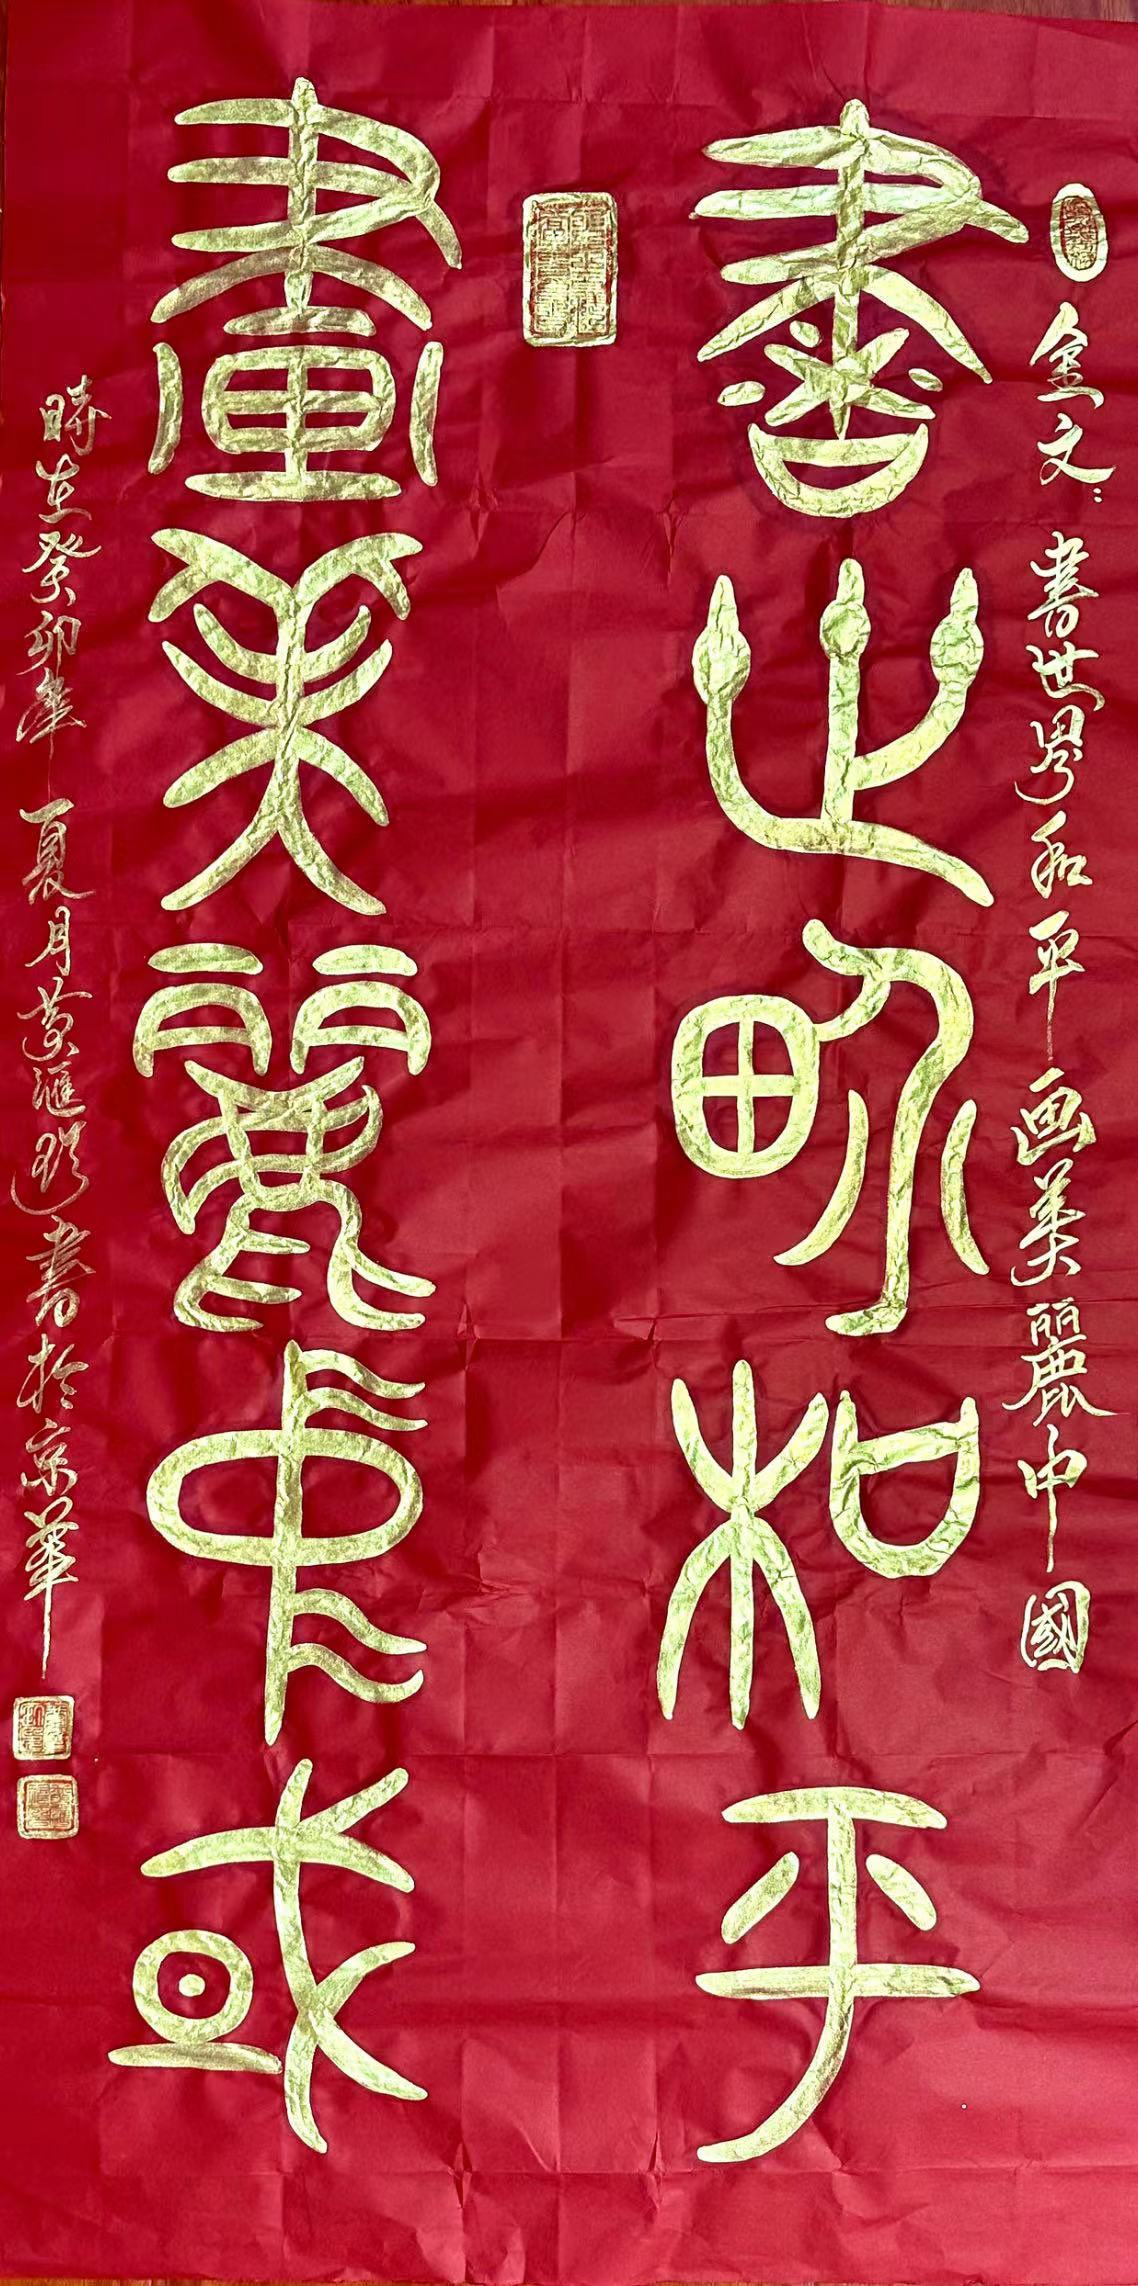 金文：書世界和平画美麗中國
書世界和平
畫美麗中或
時在癸卯年夏月黃滙瑤書於京華